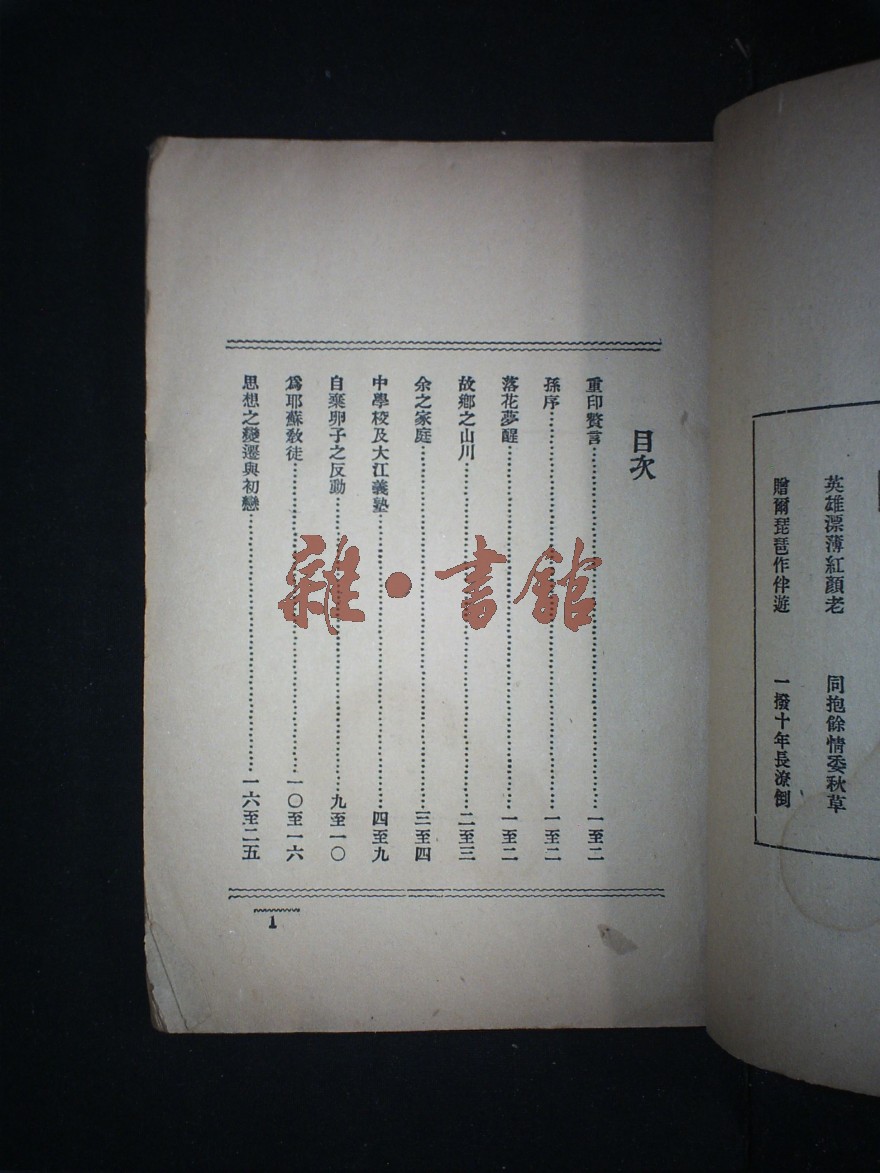 英雄漂薄紅顏老　同抱餘情委秋草
贈爾琵琶作伴遊　一撥十年長潦倒
目次
重印贅言……一至二
孫序……一至二
落花夢醒……一至二
故鄉之山川……二至三
余之家庭……三至四
中學校及大江義塾……四至九
自棄卵子之反動……九至一〇
爲耶蘇敎徒……一〇至一六
思想之變遷與初戀……一六至二五
1
雜·書舘